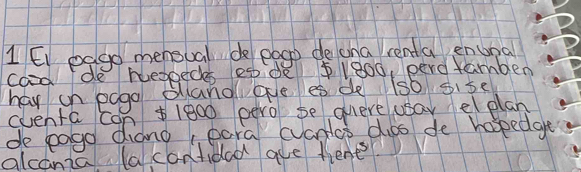 1 El pago mensual de pago de una renta en una
casa de huespedes es de $1,800, pero tamben
hay un pago diario que es de 150 si se
cuenta con $1800 pero se quere usar el plan
de pago diario, para cuantos dias de hospedaje
alcanza la cantidad que tienes